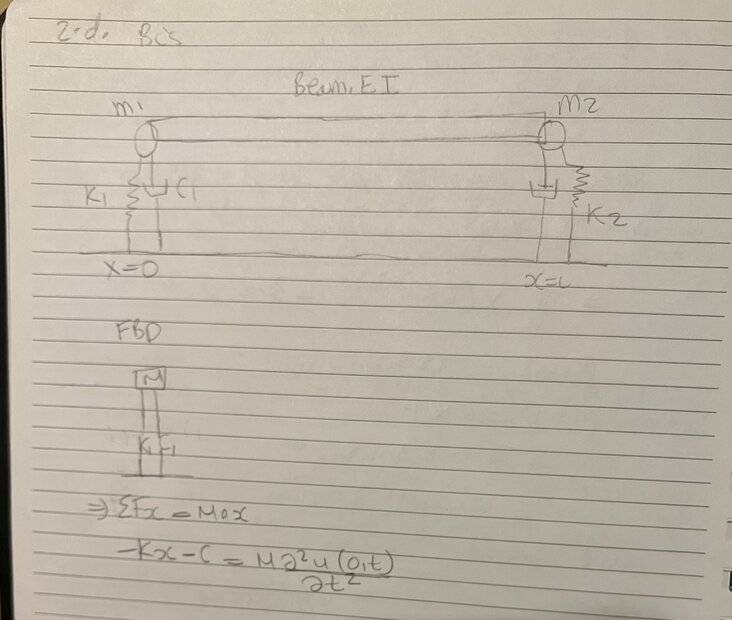 2.d. BCs
Beam, EI
m1 M2
K1 C1 K2
x=0 x=L
FBD
M
K1 C1
⇒ ΣFx = M a x
-Kx - C = M ∂²u(0,t)
∂t²